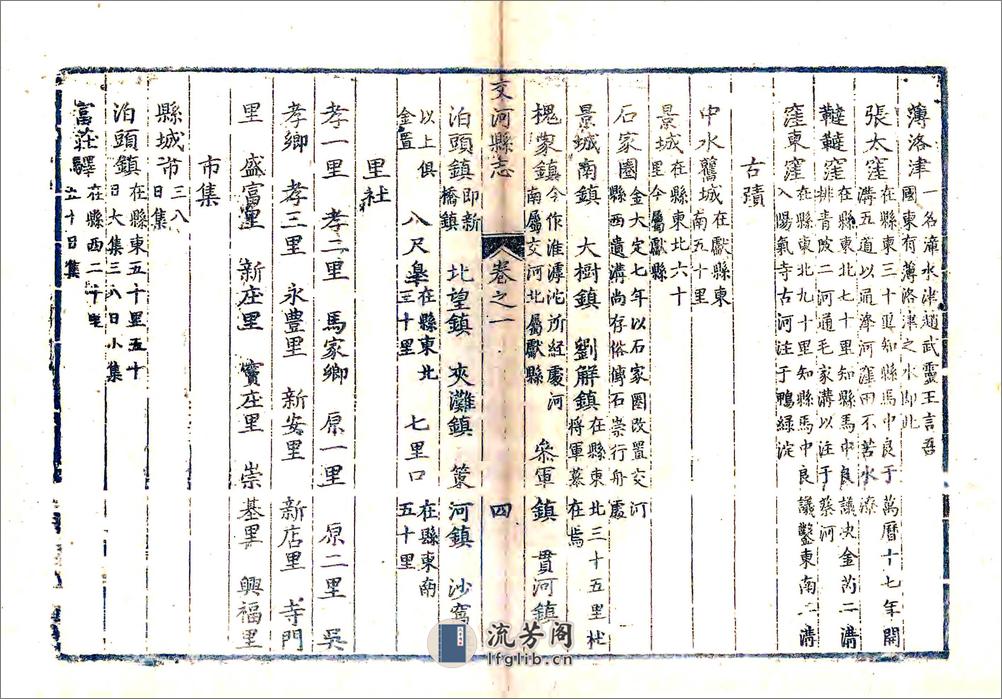 薄洛津一名漳水津趙武靈王言吾
國東有薄洛津之水即此
張太窪在縣東三十里知縣馬中良于萬曆十七年開
溝五道以通漳河窪雨不苦水潦
韃韃窪在縣東北七十里知縣馬中良議决金芮二溝
排青陂二河通毛家溝以注于蔡河
窪東窪在縣東北九十里知縣馬中良議鑿東南二溝
入陽氣寺古河注于鴨綠淀
古蹟
中水舊城在獻縣東
南五十里
景城在縣東北六十
里今屬獻縣
石家圈金大定七年以石家圈改置交河
縣西遺溝尚存俗傳石崇行舟處
景城南鎮 大樹鎮 劉解鎮在縣東北三十五里杜
將軍墓在焉
槐家鎮今作淮潭沱所經處河
南屬交河北屬獻縣 參軍鎮 貫河鎮
交河縣志 卷之一 四
泊頭鎮即新
橋鎮 北望鎮 夾灘鎮 策河鎮 沙窩
以上俱
金置 八尺臯在縣東北
三十里 七里口在縣東南
五十里
里社
孝一里 孝二里 馬家鄉 原一里 原二里 吳
孝鄉 孝三里 永豊里 新安里 新店里 寺門
里 盛富里 新庄里 竇庄里 崇基里 興福里
市集
縣城市三八
日集
泊頭鎮在縣東五十里五十
日大集三八日小集
富莊驛在縣西二十里
五十日集
流芳阁
lfglib.cn